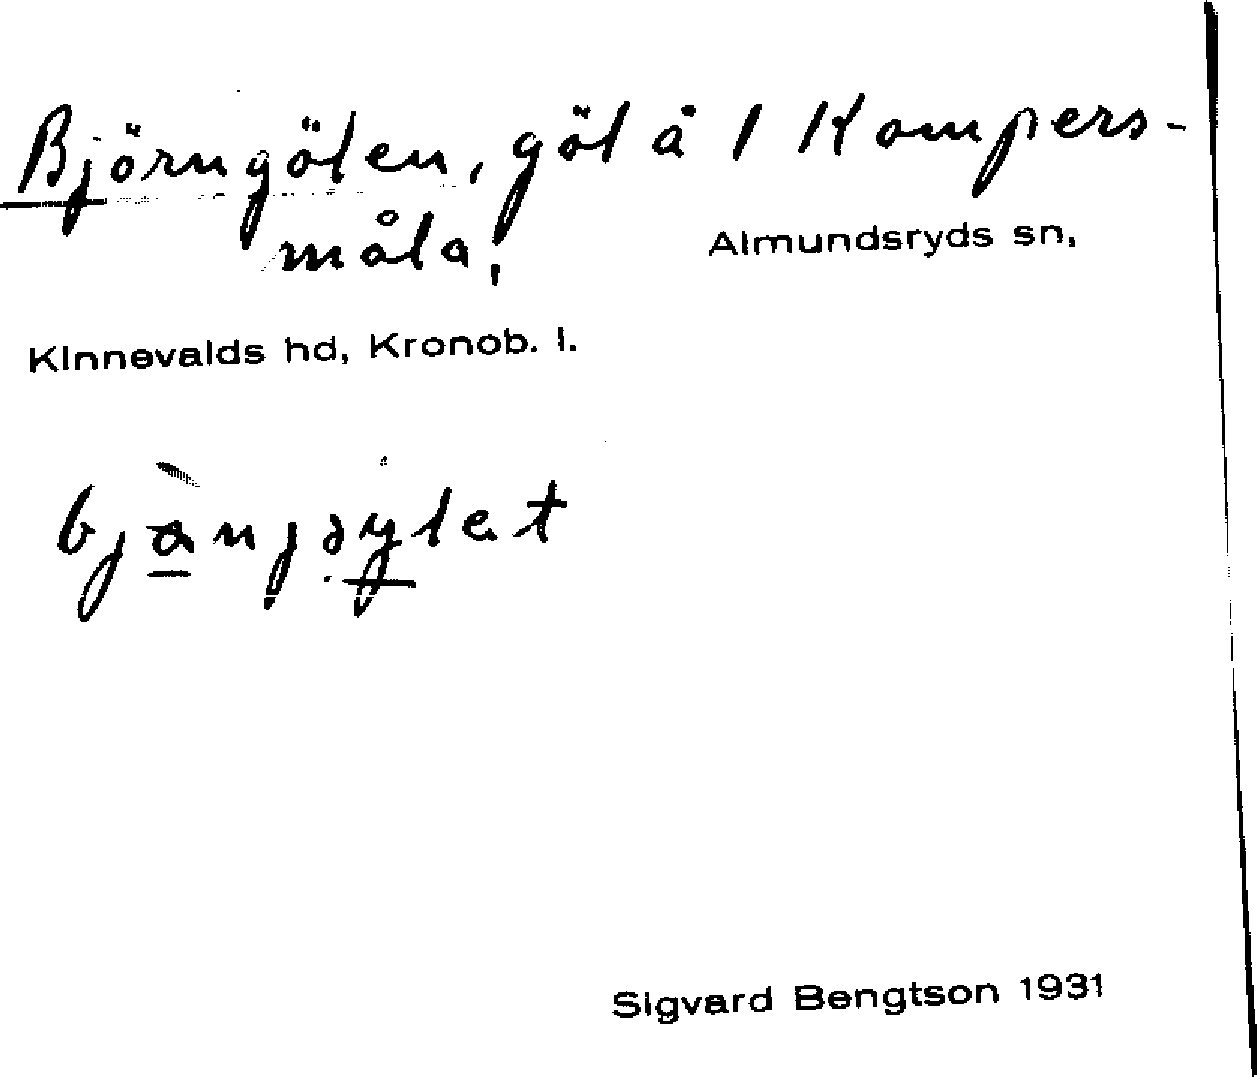 Björngölen, göl å 1 Kompers-
måla,
Almundsryds sn,
Kinnevalds hd, Kronob. l.
Sigvard Bengtson 1931